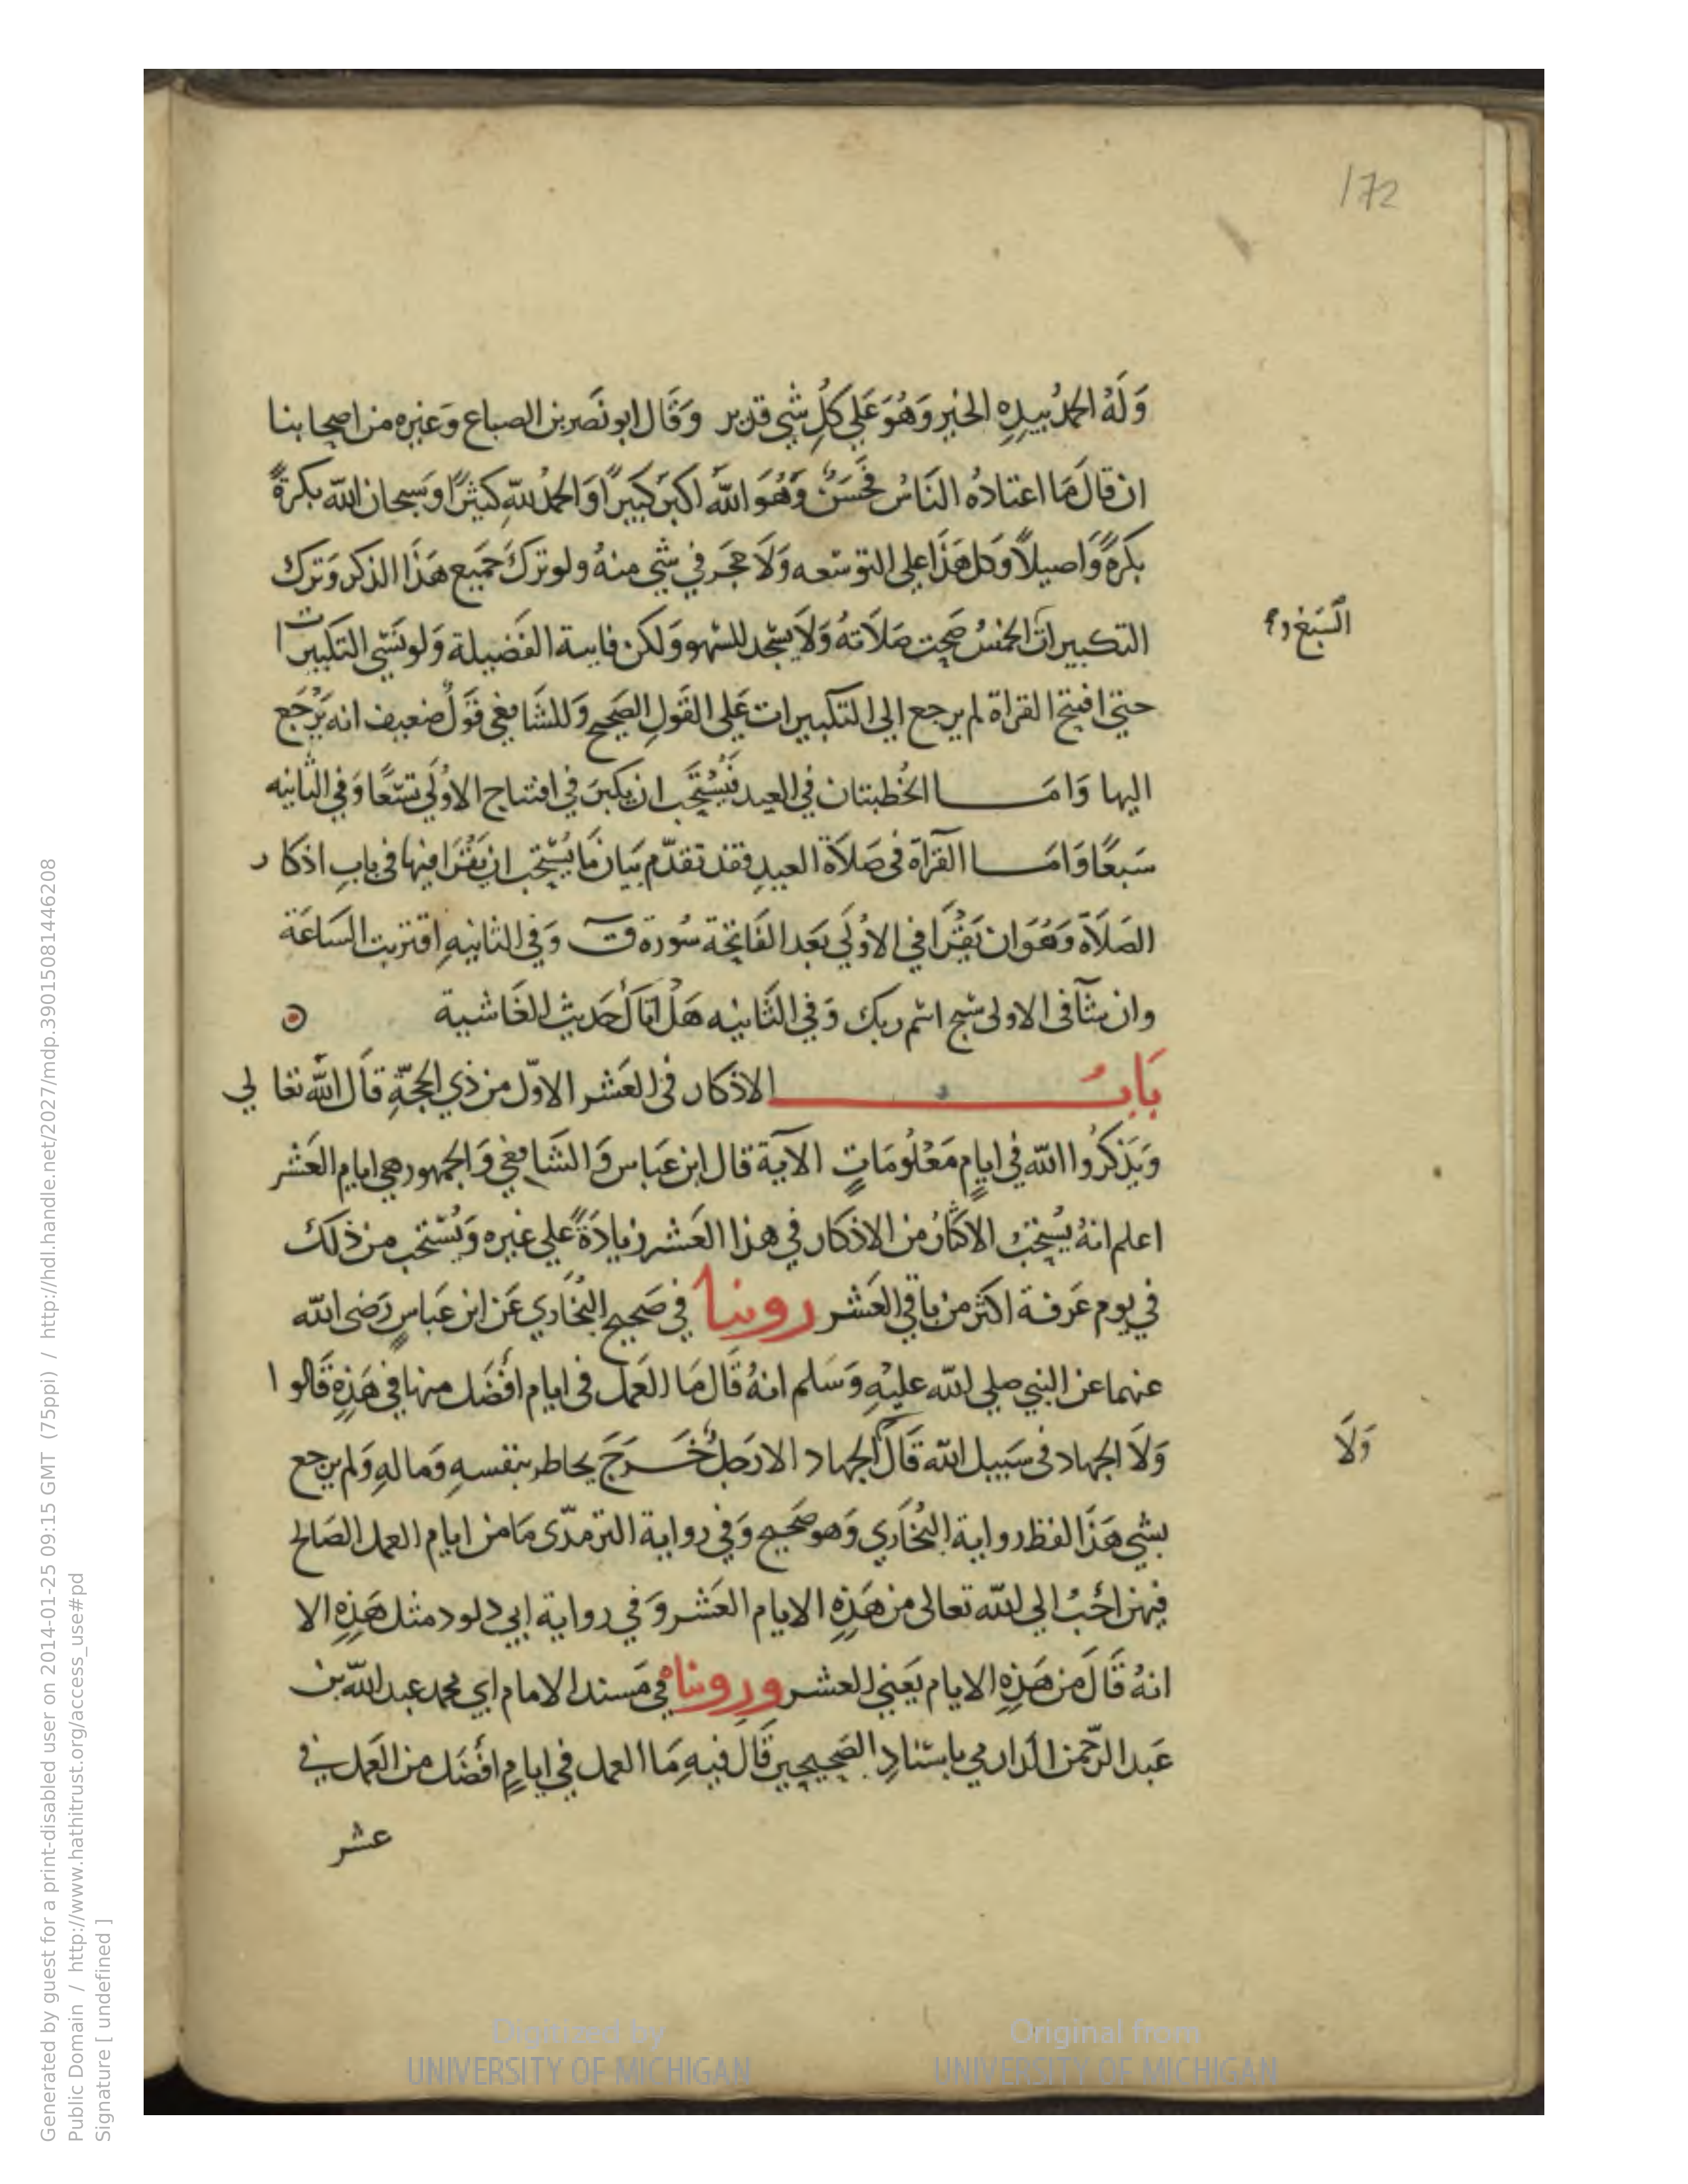 172
وَلَهُ الحمدُ بيدِهِ الخير وَهُوَ عَلي كلِ شي قدير وَقَال ابو نَصر بن الصباع وَغيره من اصحابنا
ان قالَ مَا اعتادهُ النَاسُ فحَسَنٌ وَهُوَ اللهُ اكبرَ كبيرًا وَالحمدُ للهِ كثيرًا وَسبحان الله بكرةً
بكرَةً وَاصيلاً وَكل هَذَا علي التوسعه وَلَا حجَر في شي منهُ ولو تركَ جميع هَذَا الذكر وَترك
التكبيرات الخمسُ صحت صَلَاتهُ وَلَا يسجد للسهو وَلكن فاتته الفَضيلة وَلو نَسي التكبيرات
السَبع و
حتي افتتح القراة لم يرجع الي التكبيرات عَلي القَولِ الصَحيح وَللشَافعي قَولٌ ضعيف انه يَرْجَع
اليها وَامَا الخُطبتان في العيد فيُسْتَحَب ان يكبرَ في افتتاح الاوْلَي تسعًا وَفي الثانيه
سَبعًا وَامَا القرآة في صَلَاة العيدِ فقد تقدّم بَيان مَا يُستحب ان يَقْرَا فيها في بابِ اذكار
الصَلَاة وَهُوَ ان يَقْرَا في الاوْلَي بَعَد الفَاتحَة سُورة ق وَفي الثانيهِ اقتربت السَاعَة
وان شآ في الاولى سبح اسم ربك وَفي الثَانيه هَلْ اتَاكَ حَديث الغَاشية
بَابُ الاذكار في العَشر الاوّل من ذي الحجّةِ قَال اللهُ تعالي
وَيَذكرُوا الله في ايامٍ مَعْلُومَاتٍ الآية قال ابن عَباس وَالشَافعي وَالجمهور هي ايام العَشر
اعلم انهُ يُستحَبُ الاكثَارُ من الاذكار في هذا العَشر زيادَةً علي غيره وَيُستحب من ذلك
في يوم عَرفة اكثر من باقي العَشر روينا في صَحيح البُخَاري عَن ابن عَباسٍ رَضى الله
عنهما عن النبي صلي الله عليْهِ وَسَلم انهُ قَال مَا العَمل في ايام افْضَل منها في هَذِهِ قَالوا
وَلَا الجهاد في سَبيل الله قَالَ الجهاد الا رَجلٌ خَرَجَ يخاطر بنفسهِ وَمالهِ وَلم يرجع
وَلَا
بشي هَذَا لفظ رواية البُخَاري وَهو صَحيح وَفي رواية الترمذّى مَا من ايام العمل الصَالح
فيهن احَبُ الي الله تعالى من هَذِهِ الايام العَشر وَفي رواية ابي داود مثل هَذِهِ الا
انهُ قَالَ من هَذِهِ الايام يَعَني العشر وروينَاهُ في مَسند الامام ابي محمد عبد الله بن
عَبد الرّحمن الدارمي باسنادِ الصَحيحين قَال فيهِ مَا العمل في ايامٍ افْضَل من العَمل في
عشر
Generated by guest for a print-disabled user on 2014-01-25 09:15 GMT (75ppi) / http://hdl.handle.net/2027/mdp.39015081446208
Public Domain / http://www.hathitrust.org/access_use#pd
Signature [ undefined ]
Digitized by
UNIVERSITY OF MICHIGAN
Original from
UNIVERSITY OF MICHIGAN